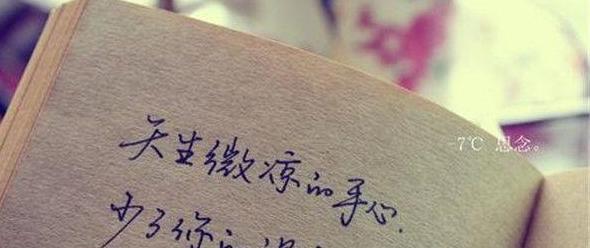 天生微凉的手心.
7℃ 思念。
少了你的